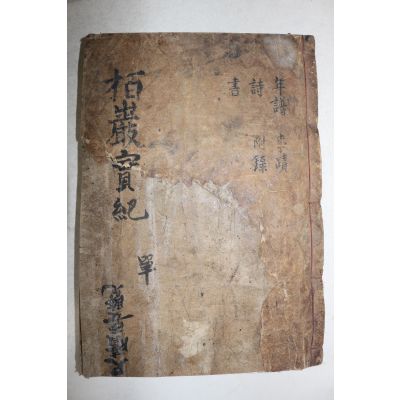 年譜 事蹟
詩 附錄
書
栢巖實紀 單